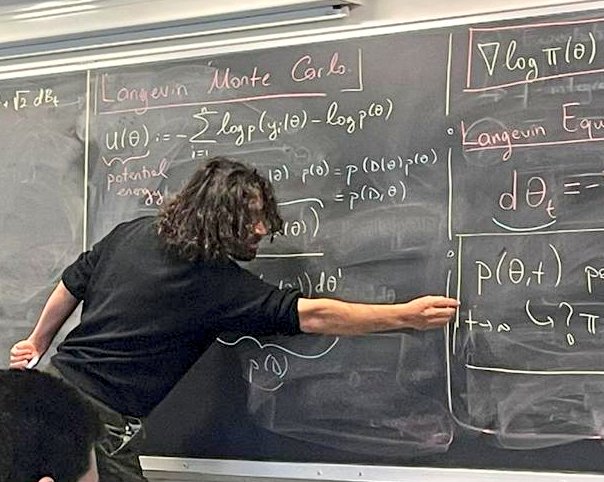 + √2 dBt
Langevin Monte Carlo
U(θ) := -∑ log p(yi(θ) - log p(θ)
n
i=1
potential
energy
(θ) p(θ) = p(D(θ) p(θ)
= p(D, θ)
(θ))
))dθ'
p(D)
∇ log π(θ)
Langevin Equ
dθt = -
p(θ,t)
t→∞ ↳ ? π